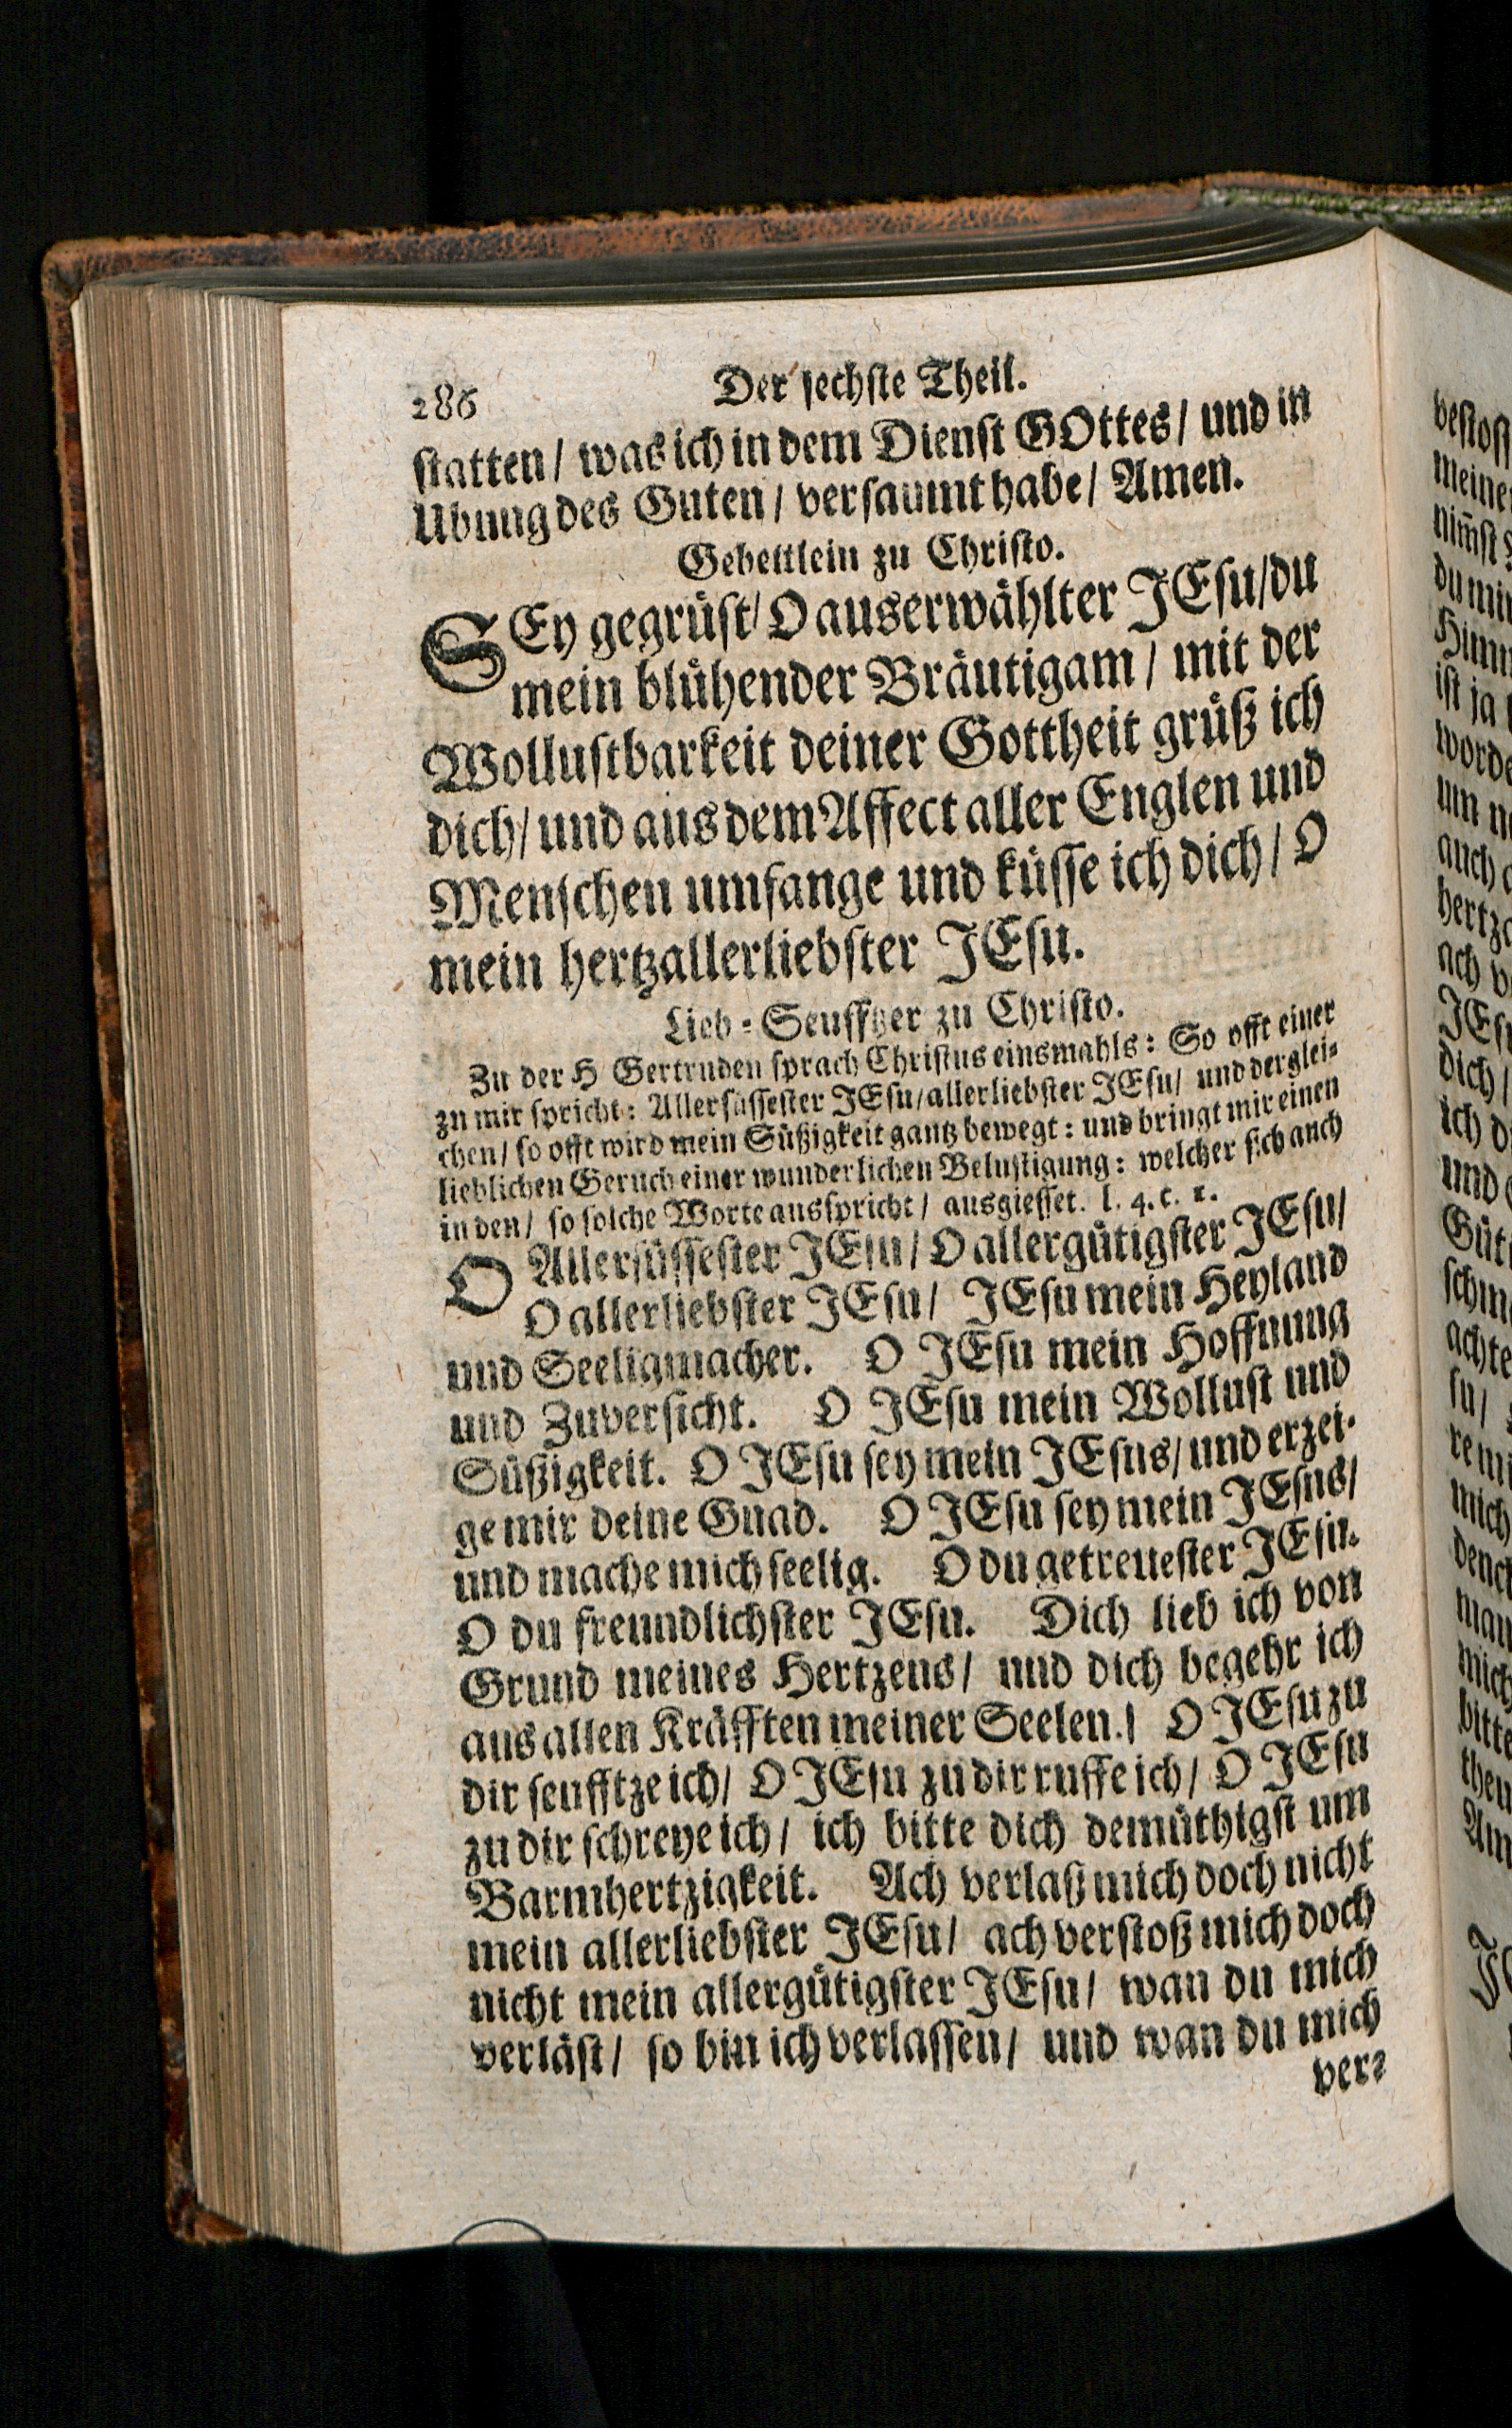 286 Der sechste Theil.
statten/ was ich in dem Dienst GOttes/ und in
Ubung des Guten/ versaumt habe/ Amen.
Gebettlein zu Christo.
SEy gegrüst/ O auserwählter JEsu/du
mein blühender Bräutigam/ mit der
Wollustbarkeit deiner Gottheit grüß ich
dich/ und aus dem Affect aller Englen und
Menschen umfange und küsse ich dich/ O
mein hertzallerliebster JEsu.
Lieb-Seufftzer zu Christo.
Zu der H Gertruden sprach Christus einsmahls: So offt einer
zu mir spricht: Allersüssester JEsu/allerliebster JEsu/ und derglei-
chen/ so offt wird mein Süßigkeit gantz bewegt: und bringt mir einen
lieblichen Geruch einer wunderlichen Belustigung: welcher sich auch
in den/ so solche Worte ausspricht/ ausgiesset. l. 4. c. 1.
O Allersüssester JEsu/ O allergütigster JEsu/
O allerliebster JEsu/ JEsu mein Heyland
und Seeligmacher. O JEsu mein Hoffnung
und Zuversicht. O JEsu mein Wollust und
Süßigkeit. O JEsu sey mein JEsus/ und erzei-
ge mir deine Gnad. O JEsu sey mein JEsus/
und mache mich seelig. O du getreuester JEsu.
O du freundlichster JEsu. Dich lieb ich von
Grund meines Hertzens/ und dich begehr ich
aus allen Kräfften meiner Seelen.| O JEsu zu
dir seufftze ich/ O JEsu zu dir ruffe ich/ O JEsu
zu dir schreye ich/ ich bitte dich demüthigst um
Barmhertzigkeit. Ach verlaß mich doch nicht
mein allerliebster JEsu/ ach verstoß mich doch
nicht mein allergütigster JEsu/ wan du mich
verläst/ so bin ich verlassen/ und wan du mich
ver-